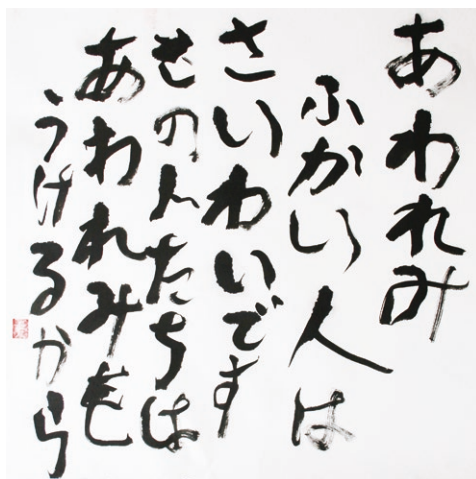 あわれみ
ふかい人は
さいわいです
その人たちは
あわれみを
うけるから